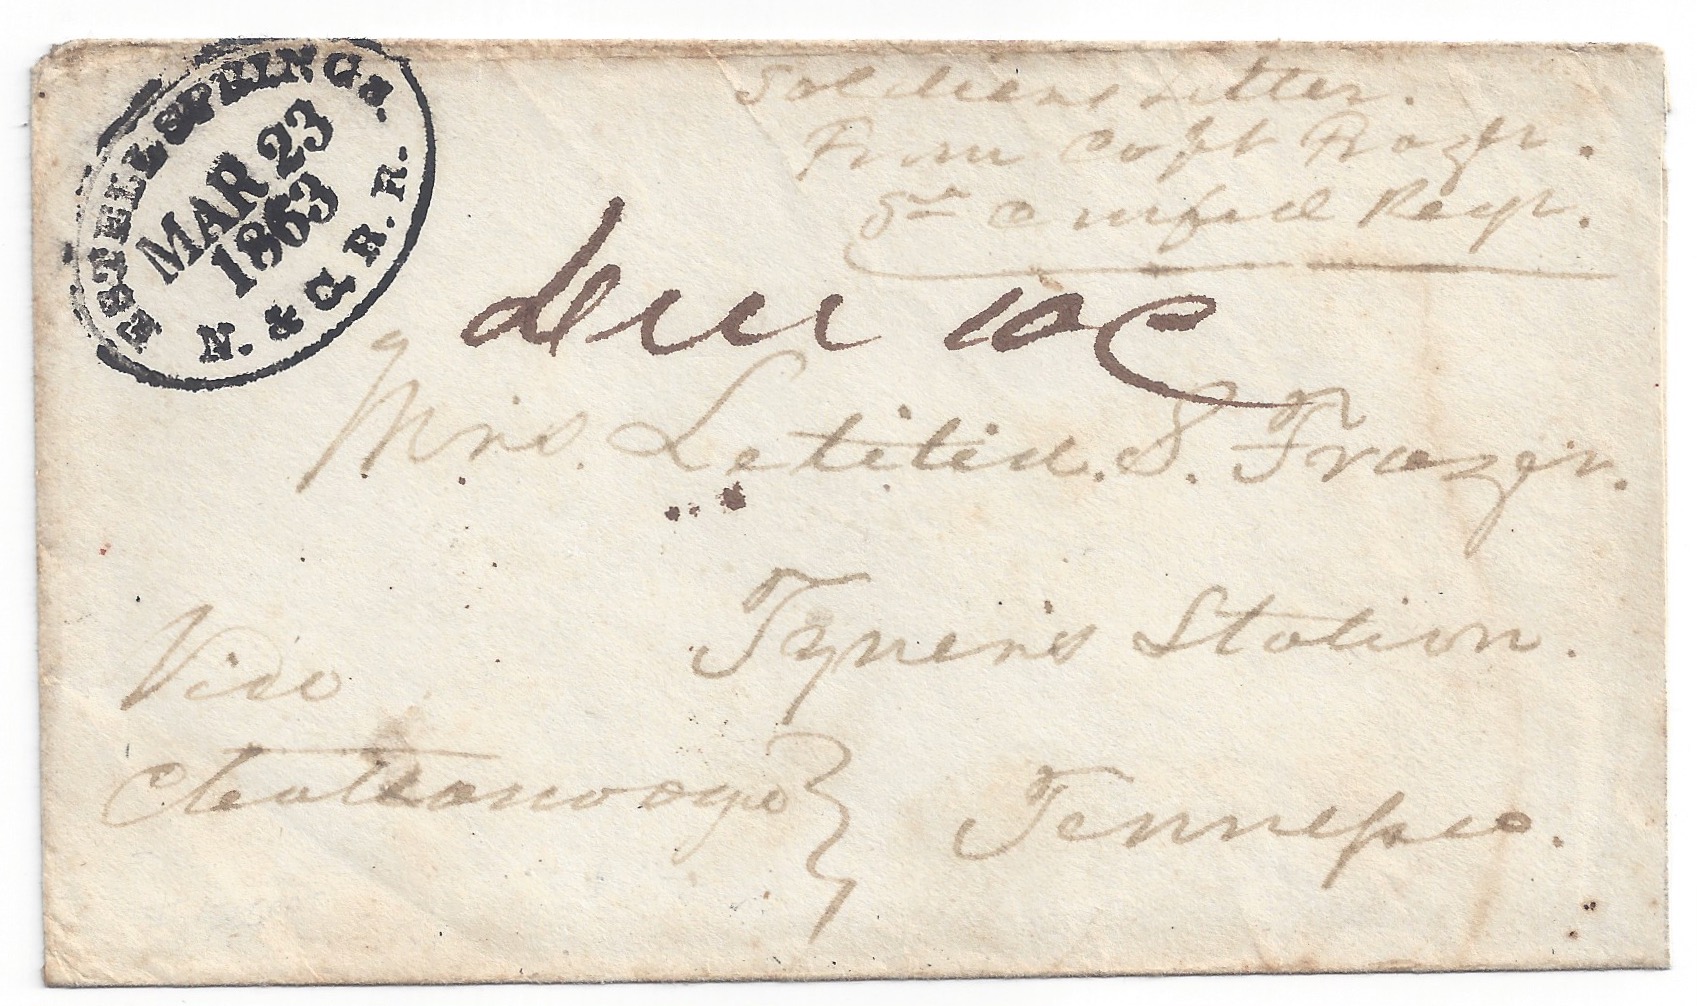 ESTELL SPRINGS.
MAR 23
1863
N. & C. R. R.
Soldiers Letter.
From Capt Frazer.
5th Confed Regt.
due 10c
Mrs. Letitia. S. Frazer.
Tyners Station.
Via
Chattanooga
Tennessee.